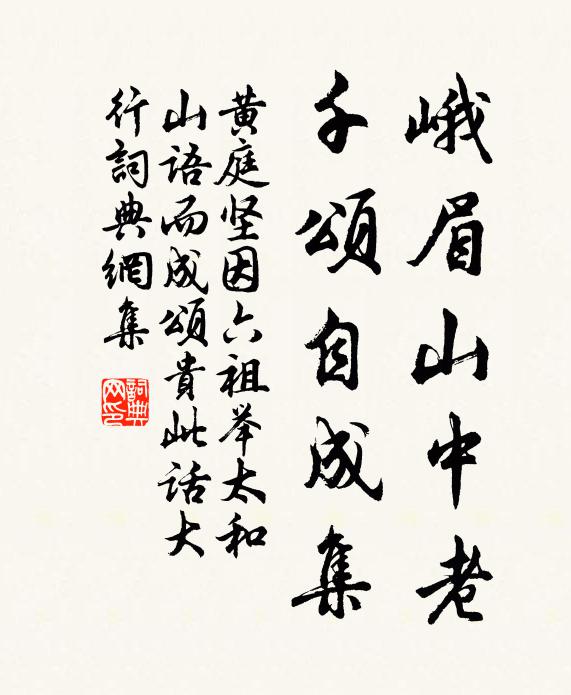 峨眉山中老
千頌自成集
黄庭坚因六祖举太和
山語而成頌貴此話大
行詞典網集
詞典
网印